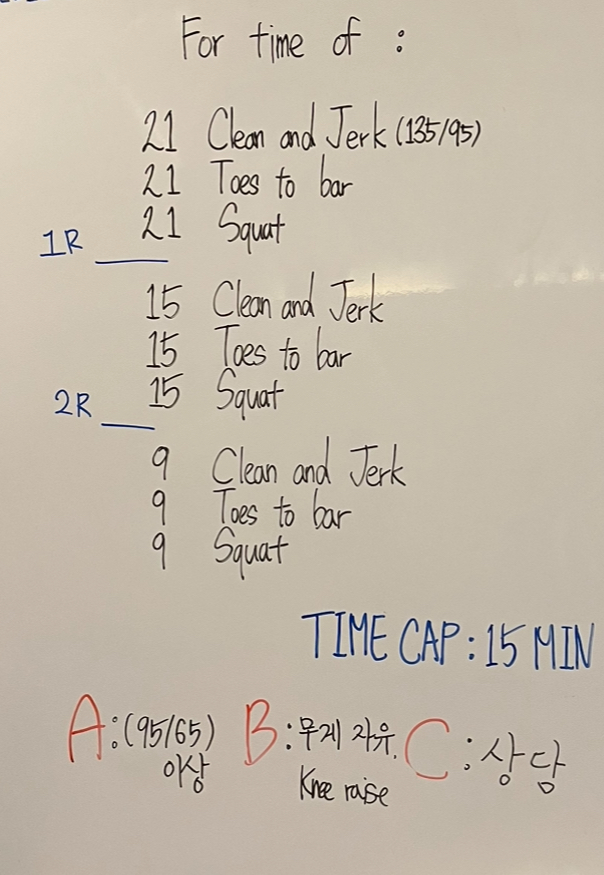 For time of :
21 Clean and Jerk (135/95)
21 Toes to bar
21 Squat
1R ___
15 Clean and Jerk
15 Toes to bar
15 Squat
2R ___
9 Clean and Jerk
9 Toes to bar
9 Squat
TIME CAP : 15 MIN
A : (95/65) 이상
B : 무게 자유. Knee raise
C : 상당